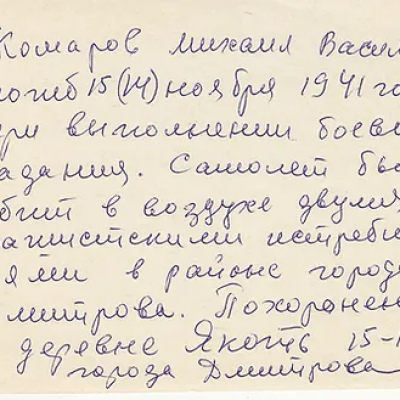 Комаров Михаил Васил
погиб 15(14) ноября 1941 го
ри выполнении боев
адания. Самолет бы
бит в воздухе двумя
ашистскими истреби
ями в районе города
митрова. Похоронен
деревне Якоть 15-
города Дмитрова